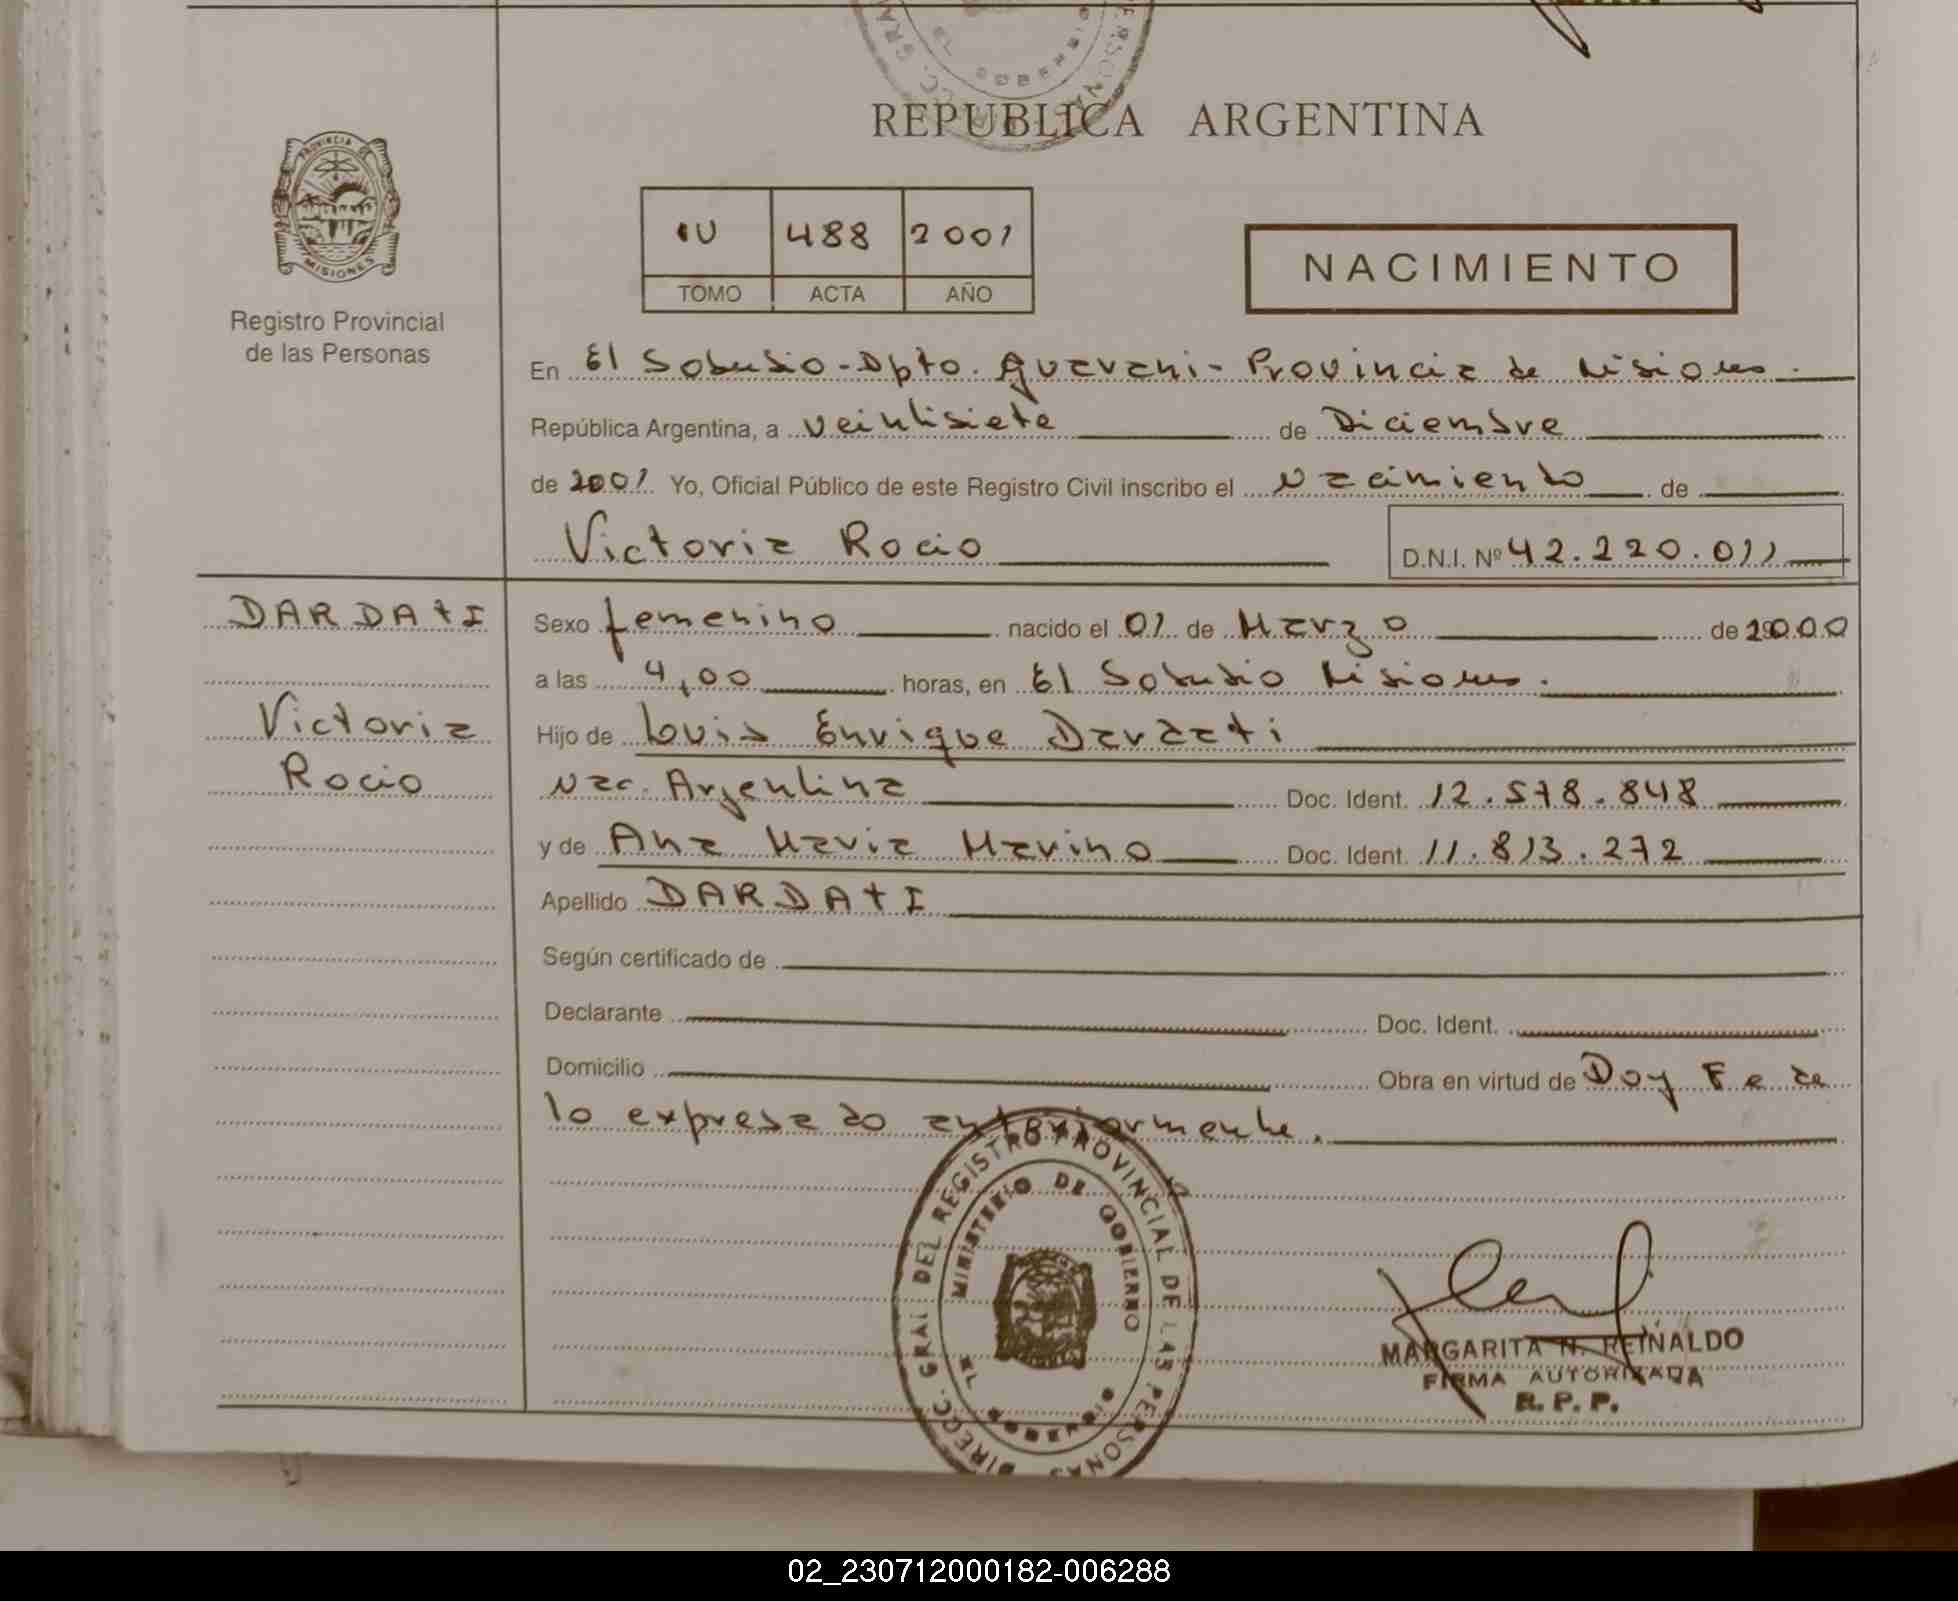 REPUBLICA ARGENTINA
PROVINCIA DE
MISIONES
Registro Provincial
de las Personas
IV 488 2001
TOMO ACTA AÑO
NACIMIENTO
En El Soberbio - Dpto. Guarani - Provincia de Misiones.
República Argentina, a veintisiete de Diciembre
de 2001 Yo, Oficial Público de este Registro Civil inscribo el Nacimiento de
Victoria Rocio D.N.I. Nº 42.220.011
DARDAtI
Victoria
Rocio
Sexo femenino nacido el 01 de Marzo de 2000
a las 4,00 horas, en El Soberbio Misiones.
Hijo de Luis Enrique Dardati
Nac. Argentina Doc. Ident. 12.578.848
y de Ana Maria Marino Doc. Ident. 11.813.272
Apellido DARDAtI
Según certificado de
Declarante Doc. Ident.
Domicilio Obra en virtud de Doy Fe de
lo expresado anteriormente.
DIRECC. GRAL DEL REGISTRO PROVINCIAL DE LAS PERSONAS
MINISTERIO DE GOBIERNO
EL SOBERBIO
MARGARITA N. REINALDO
FIRMA AUTORIZADA
R. P. P.
02_230712000182-006288